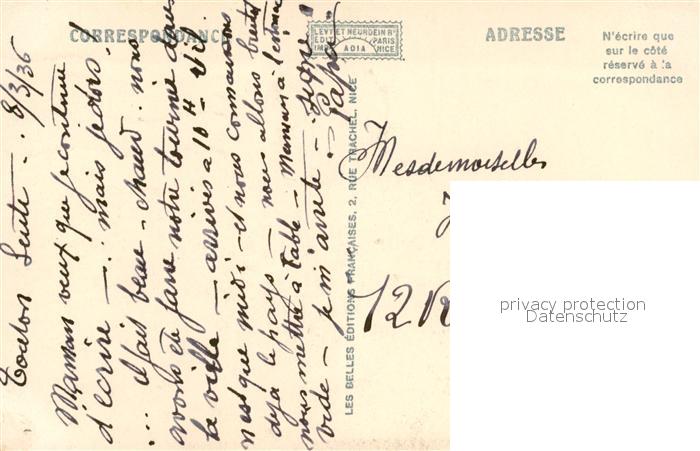 CORRESPONDANCE
LEVY ET NEURDEIN Rs
EDIT PARIS
IMP ADIA NICE
ADRESSE
N'écrire que
sur le côté
réservé à la
correspondance
Toulon 8/3/36
Maman veux que je continue
d'écrire — mais je dors!
... il fais beau - chaud - nous
avons été faire notre tournée dans
la ville — arrivés à 10 h
n'est que midi - et nous connaissons
deja le pays nous allons
nous mettre à table - Maman à
vide - je m'arrête - signé
Papa
LES BELLES ÉDITIONS FRANÇAISES, 2, RUE TRACHEL, NICE
Mesdemoiselles
12
privacy protection
Datenschutz